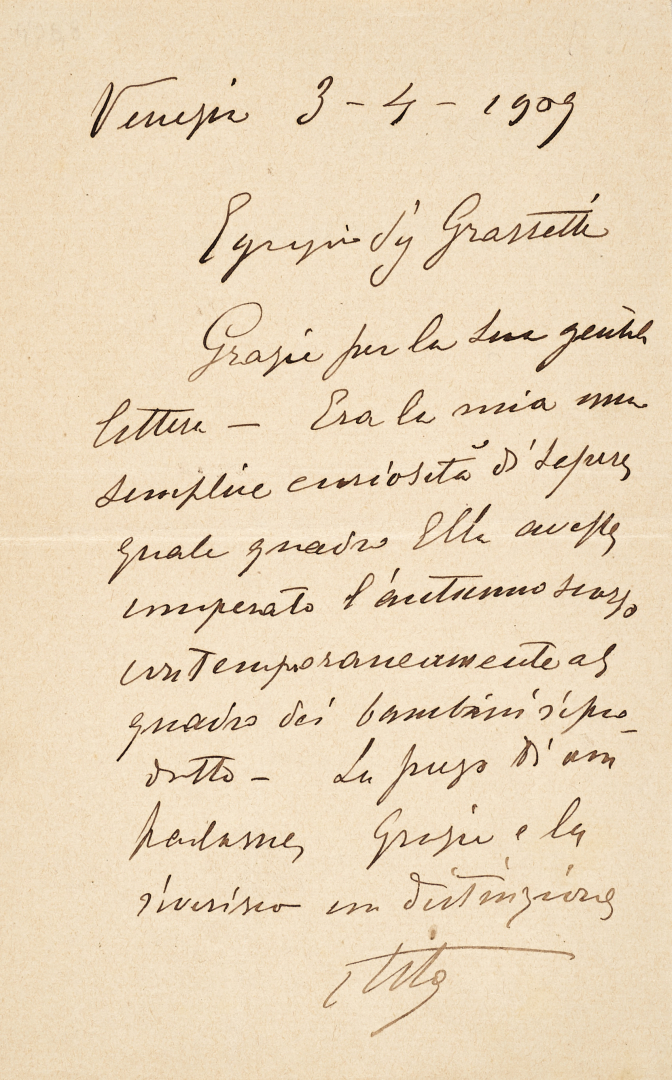 Venezia 3 - 4 - 1909
Egregio Sig Grassetti
Grazie per la sua gentile
lettera — Era la mia una
semplice curiosità di sapere
quale quadro Ella avesse
comperato l'autunno scorso
contemporaneamente al
quadro dei bambini ripro-
dotto — La prego di
Grazie e la
riverisco con distinzione